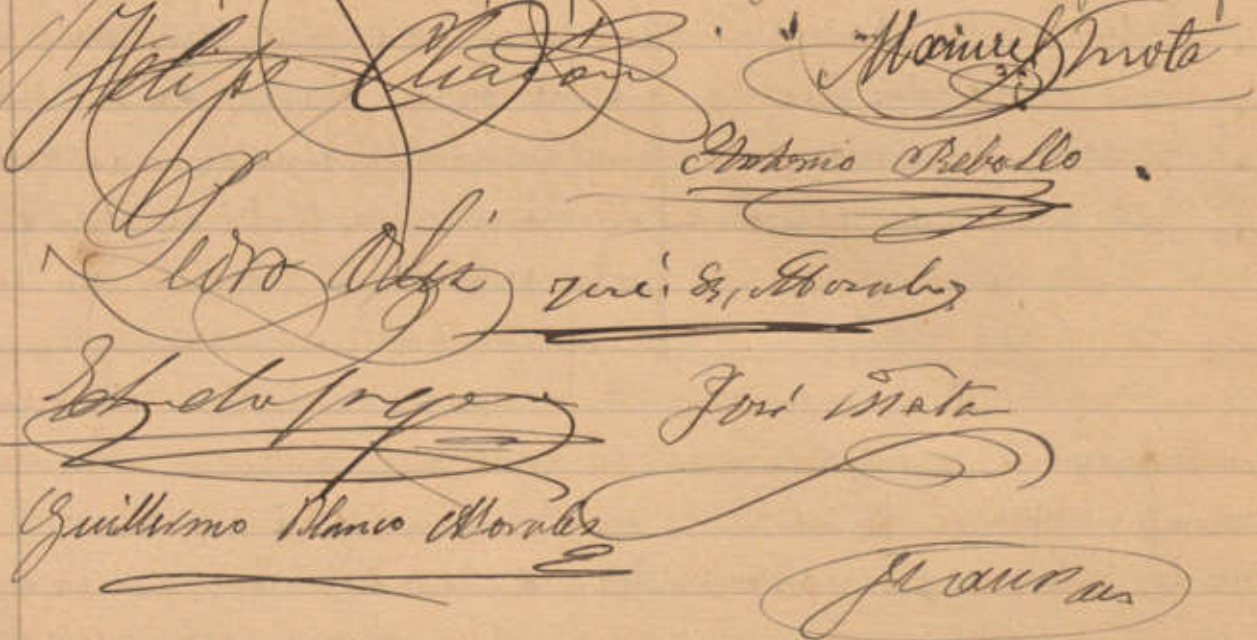 Felipe Chacón Manuel Mota
Antonio Rebollo
Pedro Ortiz José S. Morales
José Mata
Guillermo Blanco Morales